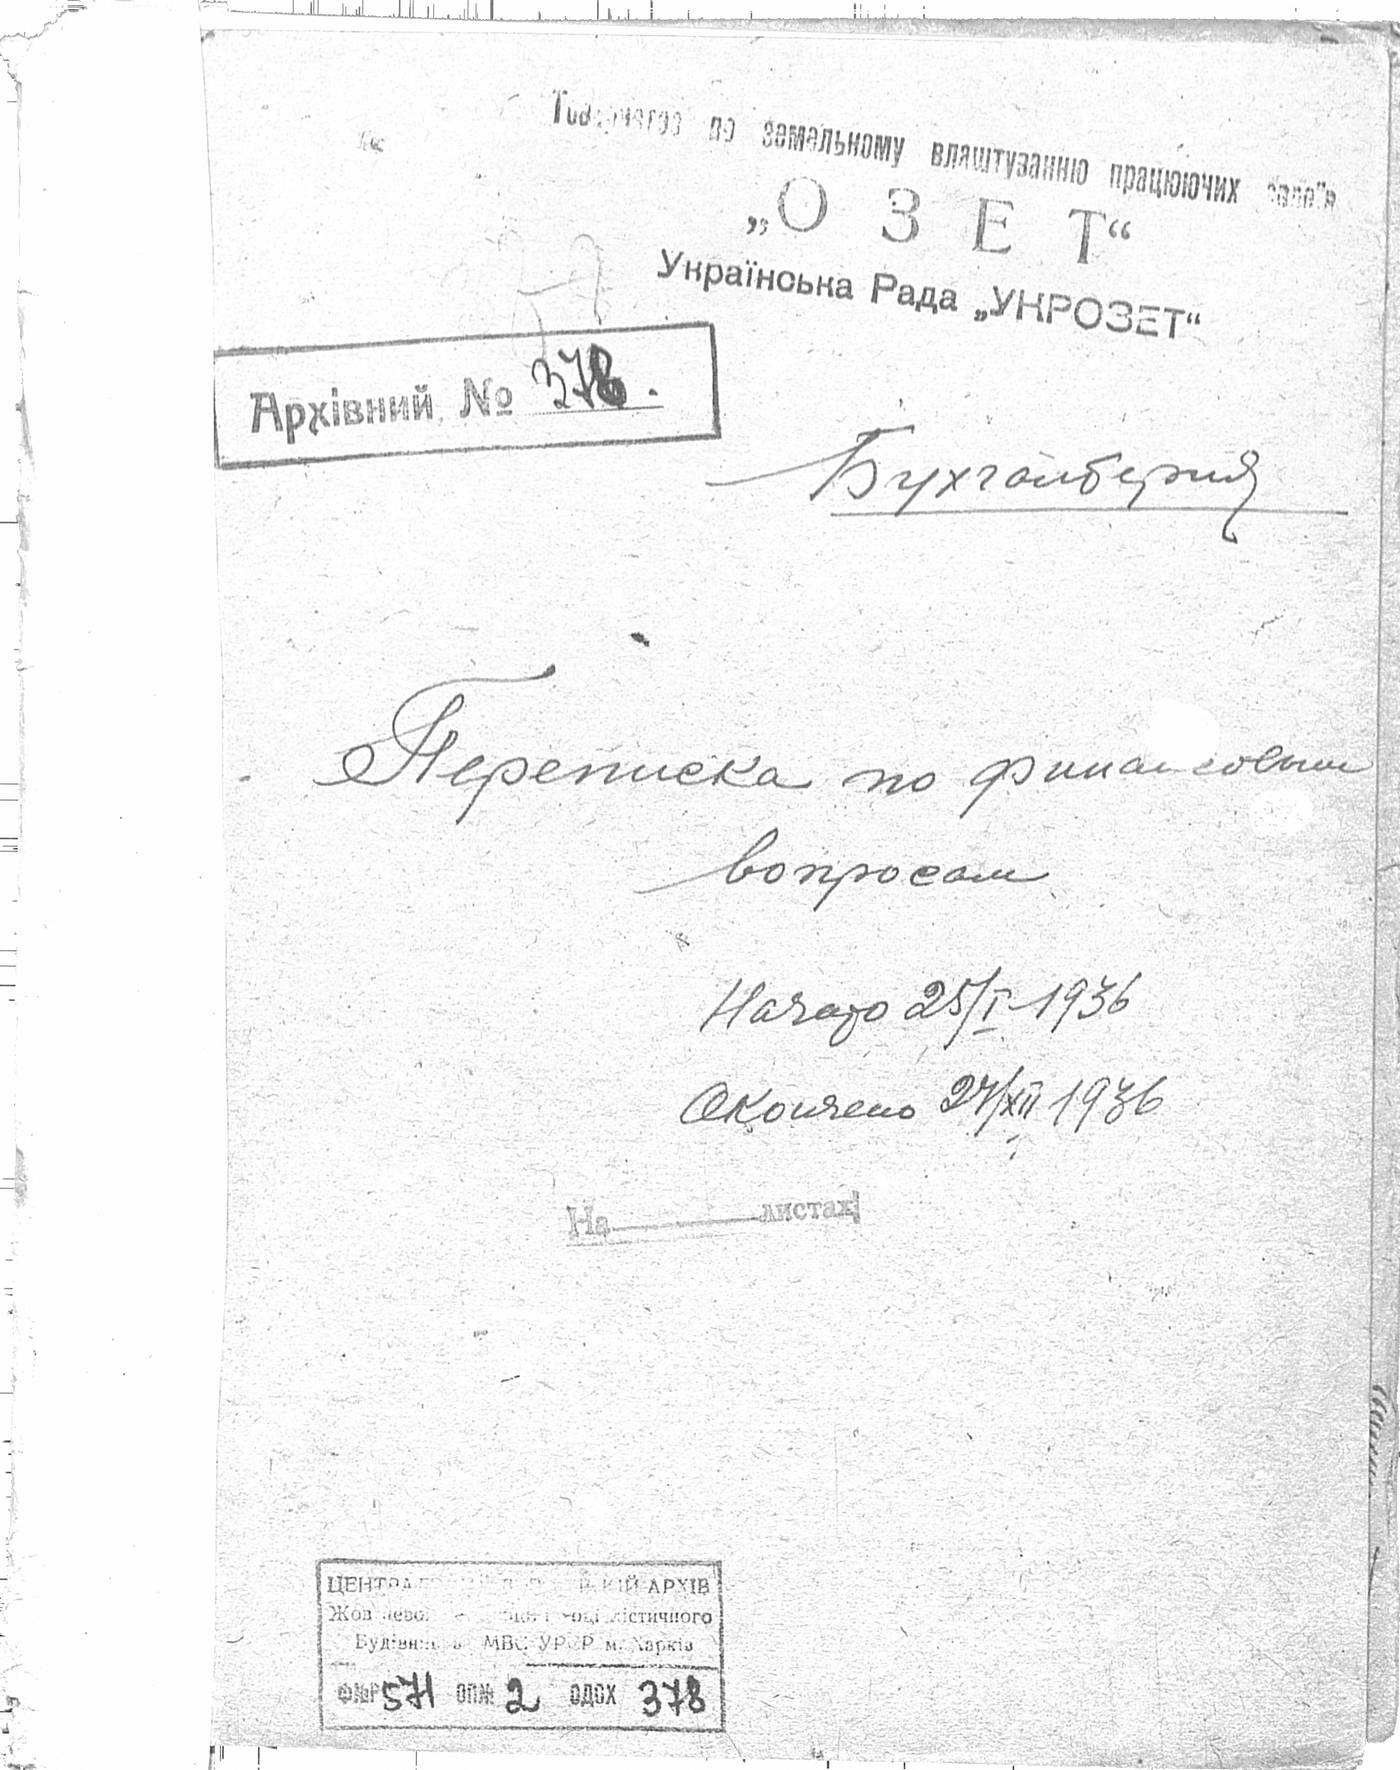 Товариство по земельному влаштуванню працюючих євреїв
„О З Е Т“
Українська Рада „УКРОЗЕТ“
Архівний № 378.
Бухгалтерия
Переписка по финансовым
вопросам
Начато 25/I-1936
Окончено 27/XII 1936
На листах
ЦЕНТРАЛЬНИЙ АРХІВ
Жовтневої революції соціалістичного
Будівництва МВС УРСР м. Харків
Ф№Р 571 оп№ 2 одох 378